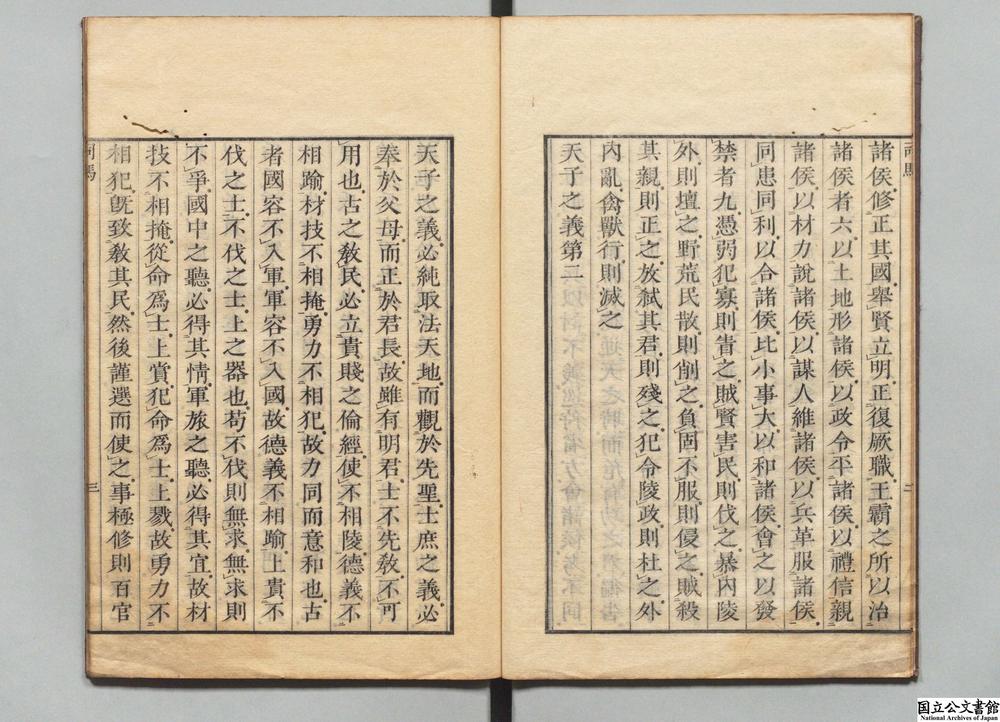 司馬
二
諸侯修正其國舉賢立明正復厥職王霸之所以治
諸侯者六以土地形諸侯以政令平諸侯以禮信親
諸侯以材力說諸侯以謀人維諸侯以兵革服諸侯
同患同利以合諸侯比小事大以和諸侯會之以發
禁者九憑弱犯寡則眚之賊賢害民則伐之暴內陵
外則壇之野荒民散則削之負固不服則侵之賊殺
其親則正之放弒其君則殘之犯令陵政則杜之外
內亂禽獸行則滅之
天子之義第二
天子之義必純取法天地而觀於先聖士庶之義必
奉於父母而正於君長故雖有明君士不先敎不可
用也古之敎民必立貴賤之倫經使不相陵德義不
相踰材技不相掩勇力不相犯故力同而意和也古
者國容不入軍軍容不入國故德義不相踰上貴不
伐之士不伐之士上之器也苟不伐則無求無求則
不爭國中之聽必得其情軍旅之聽必得其宜故材
技不相掩從命爲士上賞犯命爲士上戮故勇力不
相犯旣致敎其民然後謹選而使之事極修則百官
司馬
三
国立公文書館
National Archives of Japan